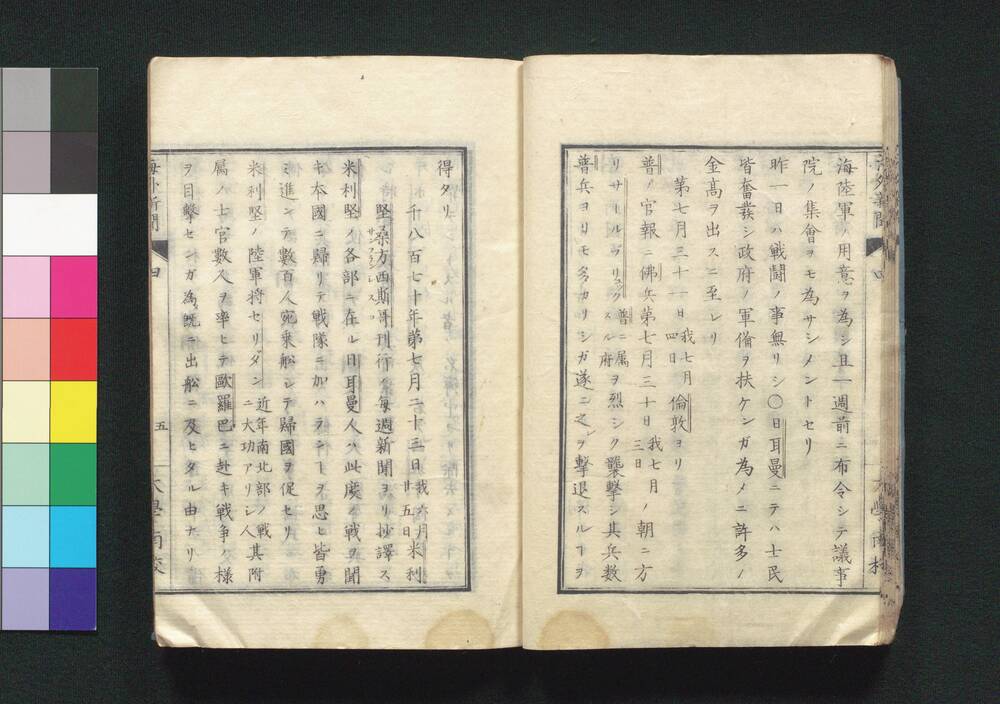 海陸軍ノ用意ヲ為シ且一週前ニ布令シテ議事
院ノ集會ヲモ為サシメントセリ
昨一日ハ戦闘ノ事無リシ〇日耳曼ニテハ士民
皆奮發シ政府ノ軍備ヲ扶ケンガ為メニ許多ノ
金高ヲ出スニ至レリ
第七月三十一日我七月四日倫敦ヨリ
普ノ官報ニ佛兵第七月三十日我七月三日ノ朝ニ方
リサールブリュック普ニ属スル府ヲ烈シク襲撃シ其兵數
普兵ヨリモ多カリシガ遂ニ之ヲ撃退スルヿヲ
得タリ
千八百七十年第七月二十三日我六月廿五日米利
堅桑方西斯哥サンフランシスコ刊行ノ毎週新聞ヨリ抄譯ス
米利堅ノ各部ニ在ル日耳曼人ハ此度ノ戦ヲ聞
キ本國ニ歸リテ戦隊ニ加ハランヿヲ思ヒ皆勇
ミ進ンテ數百人宛乗船シテ歸國ヲ促セリ
米利堅ノ陸軍将セリダン近年南北部ノ戦ニ大功アリシ人其附
属ノ士官數人ヲ率ヒテ歐羅巴ニ赴キ戦争ノ様
ヲ目撃センガ為既ニ出船ニ及ヒタル由ナリ
海外新聞 四 五 大學南校